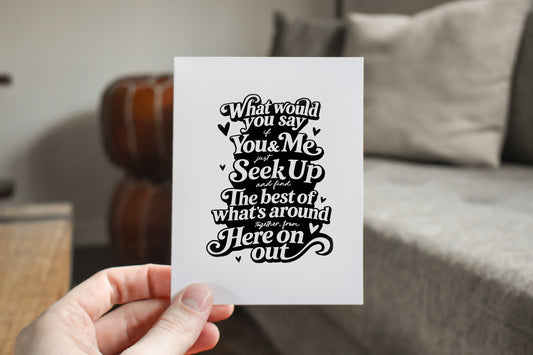 What would
you say
if
You & Me
just
Seek Up
and find
The best of
what's around
together, from
Here on
out